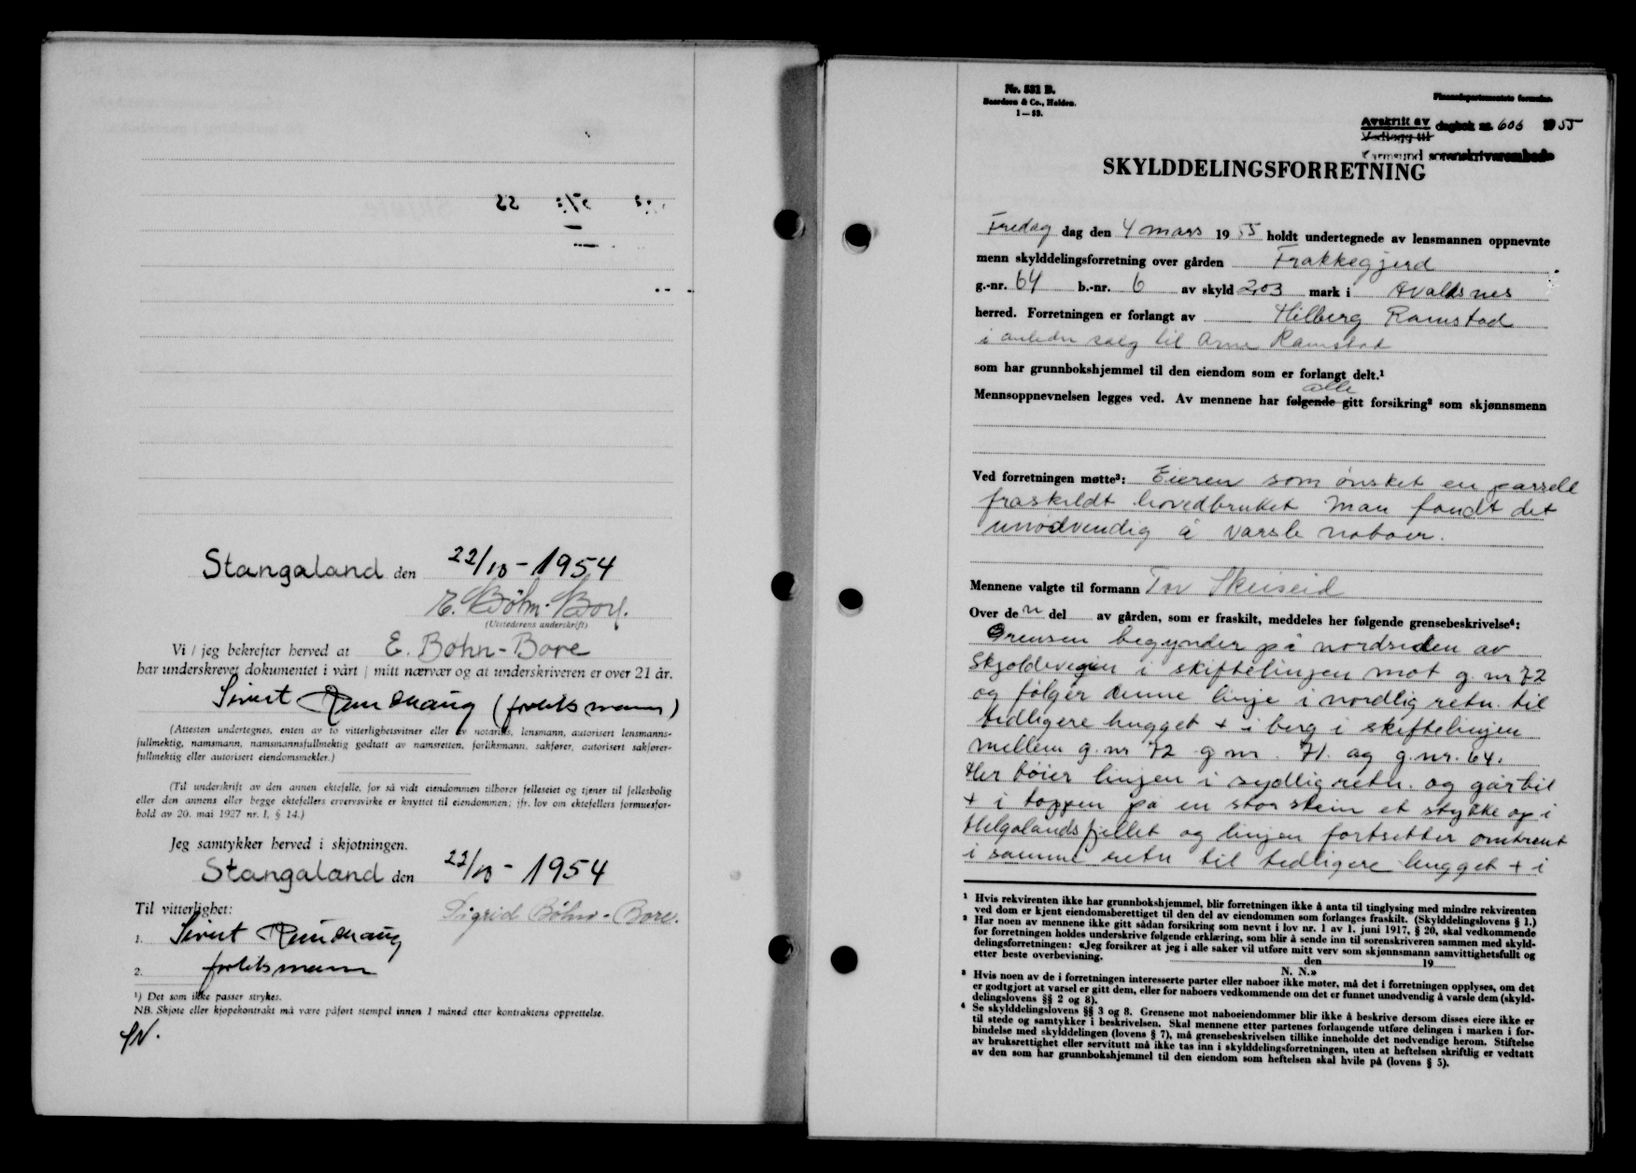 Stangaland den 22/10 - 1954
E. Bøhn-Bore.
(Utstederens underskrift)
Vi / jeg bekrefter herved at E. Bøhn-Bore
har underskrevet dokumentet i vårt / mitt nærvær og at underskriveren er over 21 år.
Sivert
(Attesten undertegnes, enten av to vitterlighetsvitner eller av notarius, lensmann, autorisert lensmanns-
fullmektig, namsmann, namsmannsfullmektig godtatt av namsretten, forliksmann, sakfører, autorisert sakfører-
fullmektig eller autorisert eiendomsmekler.)
(Til underskrift av den annen ektefelle, for så vidt eiendommen tilhører felleseiet og tjener til fellesbolig
eller den annens eller begge ektefellers ervervsvirke er knyttet til eiendommen; jfr. lov om ektefellers formuesfor-
hold av 20. mai 1927 nr. 1, § 14.)
Jeg samtykker herved i skjøtningen.
Stangaland den 22/10 - 1954
Til vitterlighet: Sigrid Bøhn-Bore.
1. Sivert
2. forliksmann
¹) Det som ikke passer strykes.
NB. Skjøte eller kjøpekontrakt må være påført stempel innen 1 måned etter kontraktens opprettelse.
Nr. 531 B.
Baardsen & Co., Halden.
1—53.
Finansdepartementets formular.
Avskrift av
Vedlegg til dagbok nr. 606 1955
Karmsund sorenskriverembede
SKYLDDELINGSFORRETNING
Fredag dag den 4 mars 1955 holdt undertegnede av lensmannen oppnevnte
menn skylddelingsforretning over gården Frakkegjerd
g.-nr. 64 b.-nr. 6 av skyld 2,03 mark i Avaldsnes
herred. Forretningen er forlangt av Hilberg Ramstad
i anledn salg til Arne Ramstad
som har grunnbokshjemmel til den eiendom som er forlangt delt.¹
alle
Mennsoppnevnelsen legges ved. Av mennene har følgende gitt forsikring² som skjønnsmenn
Ved forretningen møtte³: Eieren som ønsket en parsell
fraskildt hovedbruket Man fandt det
unødvendig å varsle naboer.
Mennene valgte til formann Tor Skeiseid
Over den del av gården, som er fraskilt, meddeles her følgende grensebeskrivelse⁴:
Grensen begynder på nordsiden av
Skjoldevegen i skiftelinjen mot g. nr 72
og følger denne linje i nordlig retn. til
tidligere hugget + i berg i skiftelinjen
mellem g. nr 72 g nr. 71. og g. nr. 64.
Her bøier linjen i sydlig retn. og går til
+ i toppen på en stor stein et stykke op i
Helgalandsfjellet og linjen fortsetter omtrent
i samme retn til tidligere hugget + i
¹ Hvis rekvirenten ikke har grunnbokshjemmel, blir forretningen ikke å anta til tinglysing med mindre rekvirenten
ved dom er kjent eiendomsberettiget til den del av eiendommen som forlanges fraskilt. (Skylddelingslovens § 1.)
² Har noen av mennene ikke gitt sådan forsikring som nevnt i lov nr. 1 av 1. juni 1917, § 20, skal vedkommende
før forretningen holdes underskrive følgende erklæring, som blir å sende inn til sorenskriveren sammen med skyld-
delingsforretningen: «Jeg forsikrer at jeg i alle saker vil utføre mitt verv som skjønnsmann samvittighetsfullt og
etter beste overbevisning. den 19
N. N.»
³ Hvis noen av de i forretningen interesserte parter eller naboer ikke møter, må det i forretningen opplyses, om det
er godtgjort at varsel er gitt dem, eller for naboers vedkommende om det er funnet unødvendig å varsle dem (skyld-
delingslovens §§ 2 og 8).
⁴ Se skylddelingslovens §§ 3 og 8. Grensene mot naboeiendommer blir ikke å beskrive dersom disses eiere ikke er
til stede og samtykker i beskrivelsen. Skal mennene etter partenes forlangende utføre delingen i marken i for-
bindelse med skylddelingen (lovens § 7), må grensebeskrivelsen tillike inneholde det nødvendige herom. Stiftelse
av bruksrettighet eller servitutt må ikke tas inn i skylddelingsforretningen, uten at heftelsen skriftlig er vedtatt
av den som har grunnbokshjemmel til den eiendom som heftelsen skal hvile på (lovens § 5).